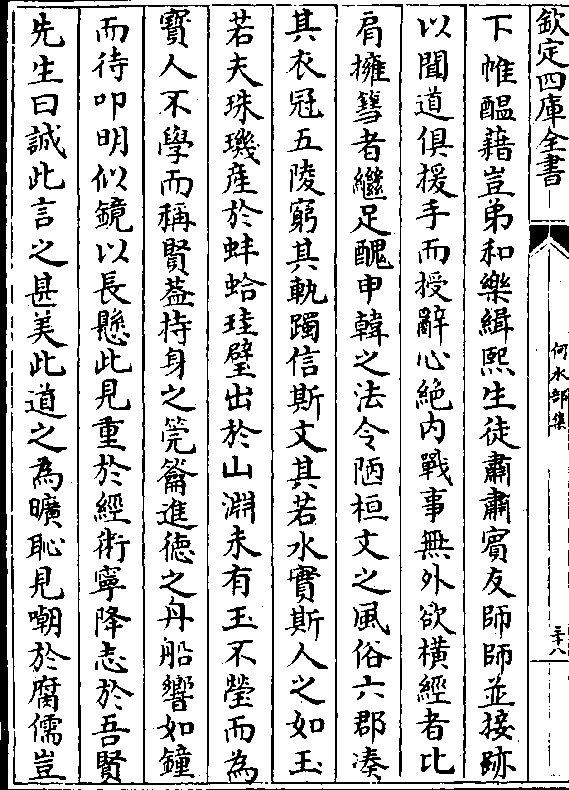 欽定四庫全書
何水部集
二十八
下帷醖藉豈弟和樂緝熙生徒肅肅賓友師師並接跡
以聞道俱援手而授辭心絶内戰事無外欲横經者比
肩擁篲者繼足醜申韓之法令陋桓文之風俗六郡湊
其衣冠五陵窮其軌躅信斯文其若水實斯人之如玉
若夫珠璣産於蚌蛤珪璧出於山淵未有玉不瑩而為
寶人不學而稱賢葢持身之筦籥進德之舟船響如鐘
而待叩明似鏡以長懸此見重於經術寧降志於吾賢
先生曰誠此言之甚美此道之為曠恥見嘲於腐儒豈